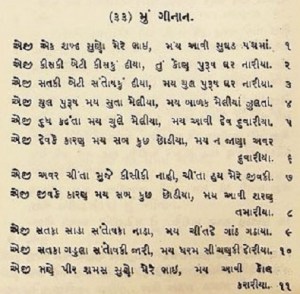 (૩૩) મું ગીનાન.
એજી એક શબ્દ સુણો મેરે ભાઇ, મય આવી સુઘઠ પંચમાં. ૧
એજી કીસકી બેટી કીસકું દીયા, તું કોણ પુરૂષ ઘર નારીયા. ૨
એજી સતકી બેટી સંતોષકું દીયા, મય ગુલ પુરૂષ ઘર નારીયા. ૩
એજી ગુલ પુરૂષ મય સુતા મેલીયા, મય બાળક મેલીયાં ઝુલતાં. ૪
એજી દુધ કઢંતા મય ચુલે મેલીયા, મય આવી દેવ દુવારીયા. ૫
એજી દેવકે કારણ મય સબ કુછ છોડીયા, મય ન જાણા અવર
દુવારીયા. ૬
એજી અવર ચીંતા મુજે કીસીકી નાહી, ચીંતા હય મેરે જીવકી. ૭
એજી જીવકે કારણ મય સબ કુછ છોડીયા, મય આવી શરણ
તમારીયા. ૮
એજી સતકા સાડા સંતોષકા નાડા, મય ચીંતદે ગાંઠ ગડાયા. ૯
એજી સતકા ગડુલા સંતોષકી જારી, મય ધરમ સીંચણુકી દોરીયા. ૧૦
એજી ભણે પીર શમસ સુણો મેરે ભાઇ, મય આવી કોલ
કરારીયા. ૧૧